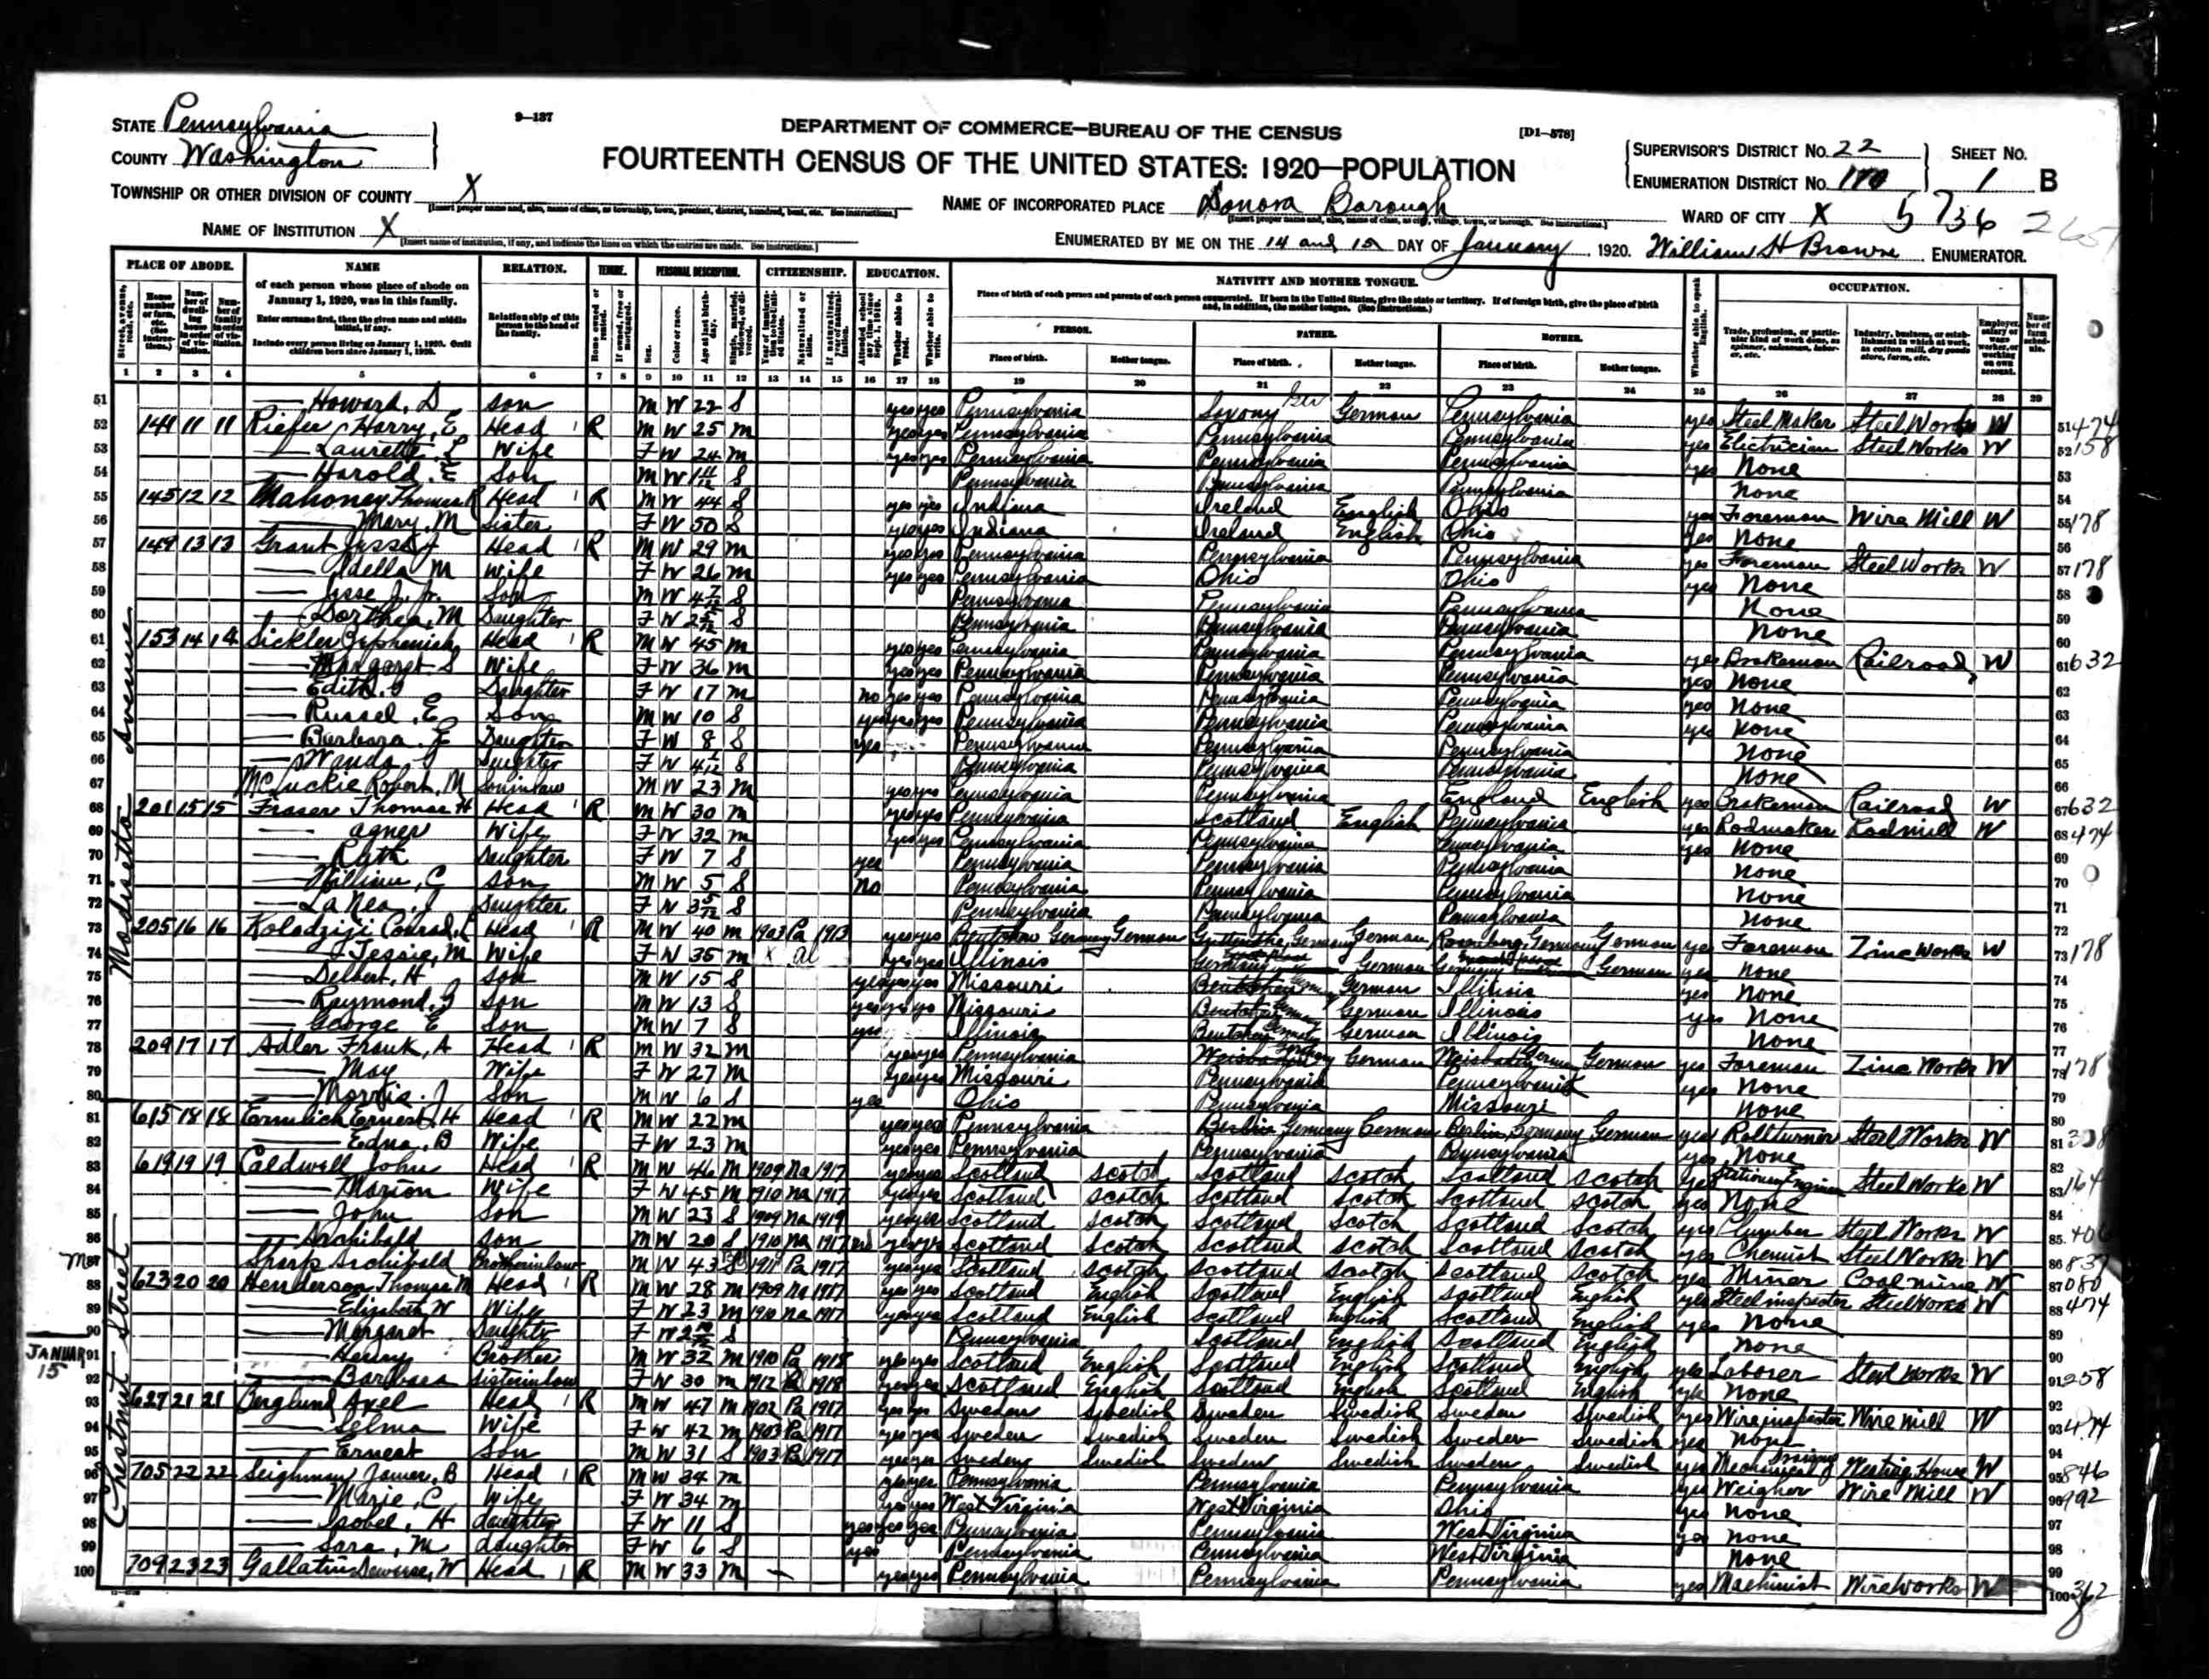 9—137
DEPARTMENT OF COMMERCE—BUREAU OF THE CENSUS
[D1-578]
STATE Pennsylvania
COUNTY Washington
FOURTEENTH CENSUS OF THE UNITED STATES: 1920—POPULATION
SUPERVISOR'S DISTRICT No. 22
SHEET No.
ENUMERATION DISTRICT No.
1 B
TOWNSHIP OR OTHER DIVISION OF COUNTY X
NAME OF INCORPORATED PLACE Donora Borough
WARD OF CITY X
5736
NAME OF INSTITUTION X
ENUMERATED BY ME ON THE 14 and 15 DAY OF January, 1920. William H Browne ENUMERATOR.
PLACE OF ABODE. NAME RELATION. TENURE. PERSONAL DESCRIPTION. CITIZENSHIP. EDUCATION. NATIVITY AND MOTHER TONGUE. OCCUPATION.
of each person whose place of abode on January 1, 1920, was in this family.
Enter surname first, then the given name and middle initial, if any.
Include every person living on January 1, 1920. Omit children born since January 1, 1920.
Relationship of this person to the head of the family.
PERSON. FATHER. MOTHER.
Place of birth. Mother tongue. Place of birth. Mother tongue. Place of birth. Mother tongue.
1 2 3 4 5 6 7 8 9 10 11 12 13 14 15 16 17 18 19 20 21 22 23 24 25 26 27 28 29
Modisette Avenue
51 — Howard, D son M W 22 S yes yes Pennsylvania Saxony Ger German Pennsylvania yes Steel Maker Steel Works W 51 474
52 141 11 11 Riefer, Harry, E Head R M W 25 M yes yes Pennsylvania Pennsylvania Pennsylvania yes Electrician Steel Works W 52 158
53 — Laurette, L Wife F W 24 M yes yes Pennsylvania Pennsylvania Pennsylvania yes None 53
54 — Harold, E Son M W 1 S Pennsylvania Pennsylvania Pennsylvania None 54
55 145 12 12 Mahoney Thomas R Head R M W 44 S yes yes Indiana Ireland English Ohio yes Foreman Wire Mill W 55 178
56 — Mary, M Sister F W 50 S yes yes Indiana Ireland English Ohio yes None 56
57 149 13 13 Grant Jesse J Head R M W 29 M yes yes Pennsylvania Pennsylvania Pennsylvania yes Foreman Steel Works W 57 178
58 — Idella M Wife F W 26 M yes yes Pennsylvania Ohio Ohio yes None 58
59 — Jesse J. Jr. Son M W 4 S Pennsylvania Pennsylvania Pennsylvania None 59
60 — Dorthea, M Daughter F W 2 S Pennsylvania Pennsylvania Pennsylvania None 60
61 153 14 14 Sickler Head R M W 45 M yes yes Pennsylvania Pennsylvania Pennsylvania yes Brakeman Railroad W 61 632
62 — Margaret S Wife F W 36 M yes yes Pennsylvania Pennsylvania Pennsylvania yes None 62
63 — Edith Daughter F W 17 M no yes yes Pennsylvania Pennsylvania Pennsylvania yes None 63
64 — Russel, E Son M W 10 S yes yes yes Pennsylvania Pennsylvania Pennsylvania yes None 64
65 — Barbara, E Daughter F W 8 S yes Pennsylvania Pennsylvania Pennsylvania None 65
66 — Wanda Daughter F W 4 S Pennsylvania Pennsylvania Pennsylvania None 66
67 McLuckie Robert, M Soninlaw M W 23 M yes yes Pennsylvania Pennsylvania England English yes Brakeman Railroad W 67 632
68 201 15 15 Fraser Thomas H Head R M W 30 M yes yes Pennsylvania Scotland English Pennsylvania yes Rodmaker Rodmill W 68 474
69 — Agnes Wife F W 32 M yes yes Pennsylvania Pennsylvania Pennsylvania yes None 69
70 — Ruth Daughter F W 7 S yes Pennsylvania Pennsylvania Pennsylvania None 70
71 — William, C son M W 5 S No Pennsylvania Pennsylvania Pennsylvania None 71
72 — Daughter F W 3 S Pennsylvania Pennsylvania Pennsylvania None 72
73 205 16 16 Head R M W 40 M 1903 Pa 1913 yes yes Germany German Germany German Rosenberg, Germany German yes Foreman Zinc Works W 73 178
74 — Jessie, M Wife F W 35 M X al yes yes Illinois Germany German Germany German yes None 74
75 — Delbert, H son M W 15 S yes yes yes Missouri German Illinois yes None 75
76 — Raymond, J son M W 13 S yes yes yes Missouri German Illinois yes None 76
77 — George E Son M W 7 S yes Illinois German Illinois None 77
78 209 17 17 Adler Frank, A Head R M W 32 M yes yes Pennsylvania German German yes Foreman Zinc Works W 78 178
79 — May Wife F W 27 M yes yes Missouri Pennsylvania Pennsylvania yes None 79
80 — Morris. J Son M W 6 S yes Ohio Pennsylvania Missouri None 80
Chestnut Street
81 615 18 18 Ernest, H Head R M W 22 M yes yes Pennsylvania Berlin Germany German Berlin, Germany German yes Roll turner Steel Works W 81
82 — Edna, B Wife F W 23 M yes yes Pennsylvania Pennsylvania Pennsylvania yes None 82
83 619 19 19 Caldwell John Head R M W 46 M 1909 Na 1917 yes yes Scotland Scotch Scotland Scotch Scotland Scotch yes Stationary Engineer Steel Works W 83 164
84 — Marion Wife F W 45 M 1910 Na 1917 yes yes Scotland Scotch Scotland Scotch Scotland Scotch yes None 84
85 — John Son M W 23 S 1909 Na 1919 yes yes Scotland Scotch Scotland Scotch Scotland Scotch yes Plumber Steel Works W 85 406
86 — Archibald son M W 20 S 1910 Na 1917 yes yes Scotland Scotch Scotland Scotch Scotland Scotch yes Chemist Steel Works W 86 837
87 Sharp Archibald Brotherinlaw M W 43 1911 Pa 1917 yes yes Scotland Scotch Scotland Scotch Scotland Scotch yes Miner Coal mine W 87 080
88 623 20 20 Henderson, Thomas M Head R M W 28 M 1909 Na 1917 yes yes Scotland English Scotland English Scotland English yes Steel inspector Steel Works W 88 474
89 — Elizabeth W Wife F W 23 M 1910 Na 1917 yes yes Scotland English Scotland English Scotland English yes None 89
90 — Margaret Daughter F W 2 S Pennsylvania Scotland English Scotland English None 90
JANUARY 15
91 — Henry Brother M W 32 M 1910 Pa 1918 yes yes Scotland English Scotland English Scotland English yes Laborer Steel Works W 91 258
92 — Barbara Sisterinlaw F W 30 M 1912 Pa 1918 yes yes Scotland English Scotland English Scotland English yes None 92
93 627 21 21 Berglund Axel Head R M W 47 M 1902 Pa 1917 yes yes Sweden Swedish Sweden Swedish Sweden Swedish yes Wire inspector Wire Mill W 93 474
94 — Selma Wife F W 42 M 1903 Pa 1917 yes yes Sweden Swedish Sweden Swedish Sweden Swedish yes None 94
95 — Ernest Son M W 31 S 1903 Pa 1917 yes yes Sweden Swedish Sweden Swedish Sweden Swedish yes Mechanical Westing House W 95 846
96 705 22 22 Seighman James, B Head R M W 34 M yes yes Pennsylvania Pennsylvania Pennsylvania yes Weigher Wire Mill W 96 992
97 — Marie, C Wife F W 34 M yes yes West Virginia West Virginia Ohio yes None 97
98 — Isobel, H daughter F W 11 S yes yes yes Pennsylvania Pennsylvania West Virginia yes None 98
99 — Sara, M daughter F W 6 S yes Pennsylvania Pennsylvania West Virginia None 99
100 709 23 23 Gallatin W Head R M W 33 M yes yes Pennsylvania Pennsylvania Pennsylvania yes Machinist Wire Works W 100 362